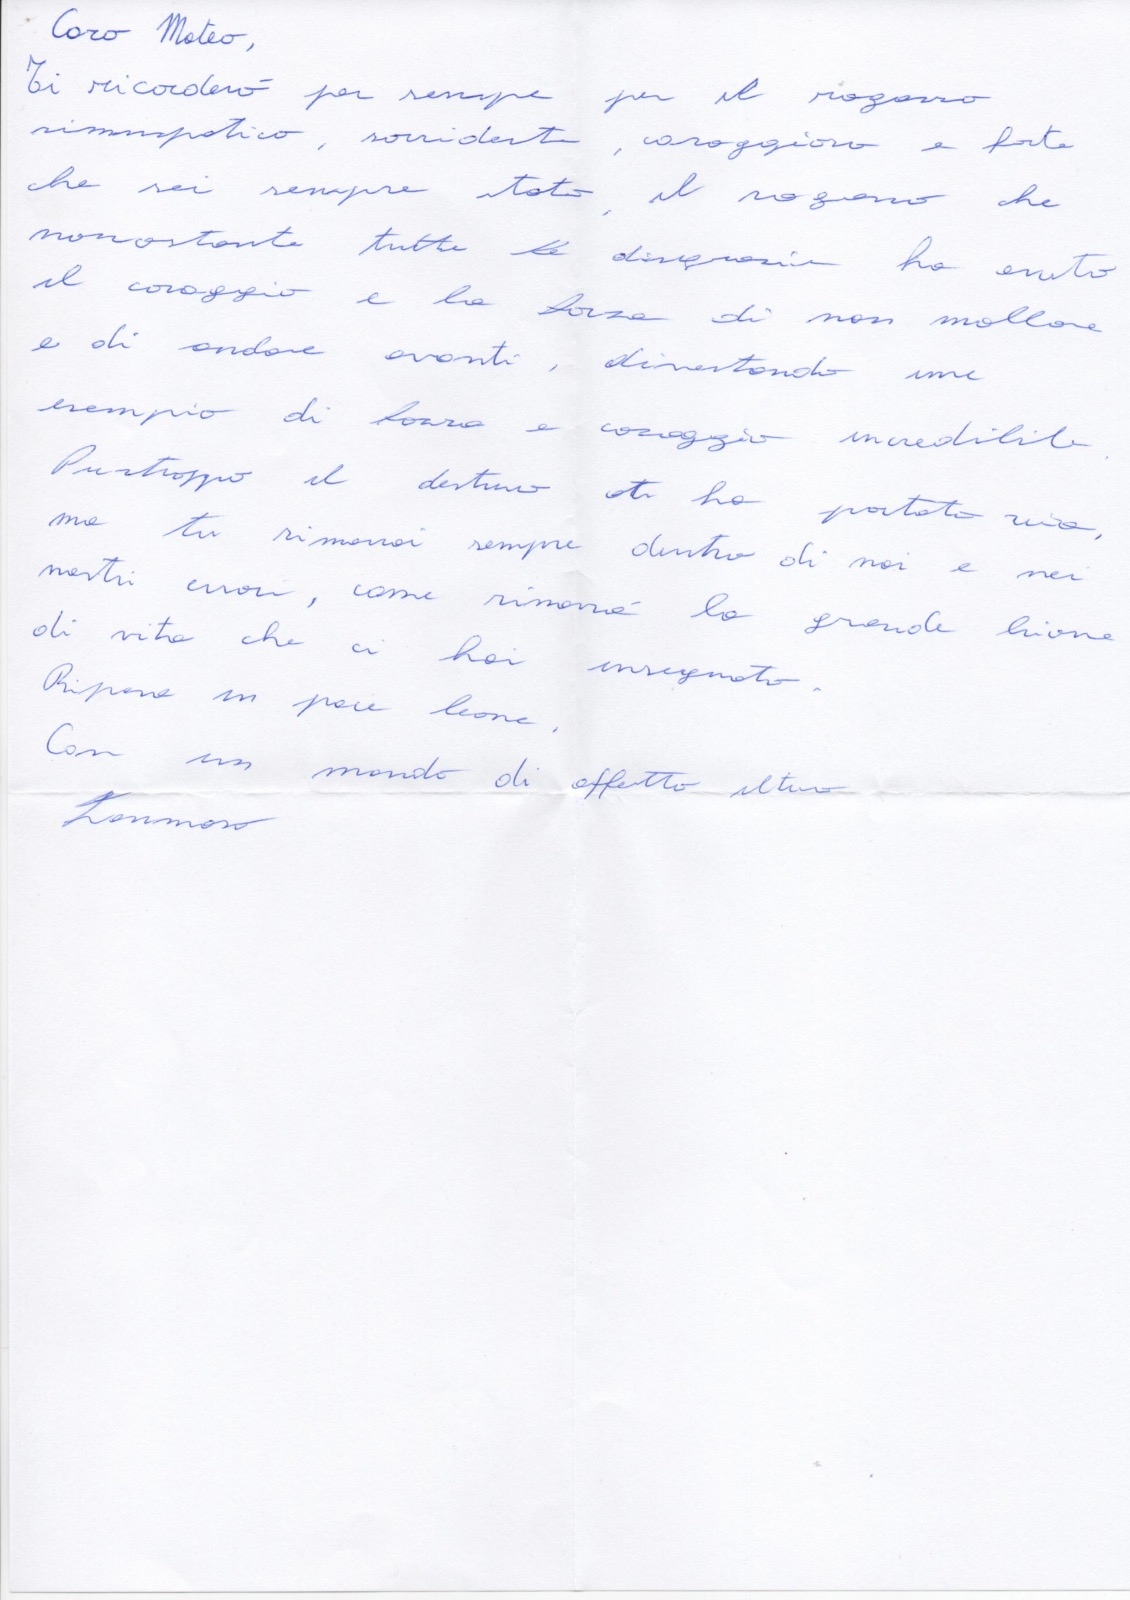 Caro Mateo,
Ti ricorderò per sempre per il ragazzo
simpatico, sorridente, coraggioso e forte
che sei sempre stato, il ragazzo che
nonostante tutte le disgrazie ha avuto
il coraggio e la forza di non mollare
e di andare avanti, diventando une
esempio di forza e coraggio incredibile.
Purtroppo il destino ti ha portato via,
ma tu rimarrai sempre dentro di noi e nei
nostri cuori, come rimarrà la grande lezione
di vita che ci hai insegnato.
Riposa in pace leone.
Con un mondo di affetto il tuo
Tommaso